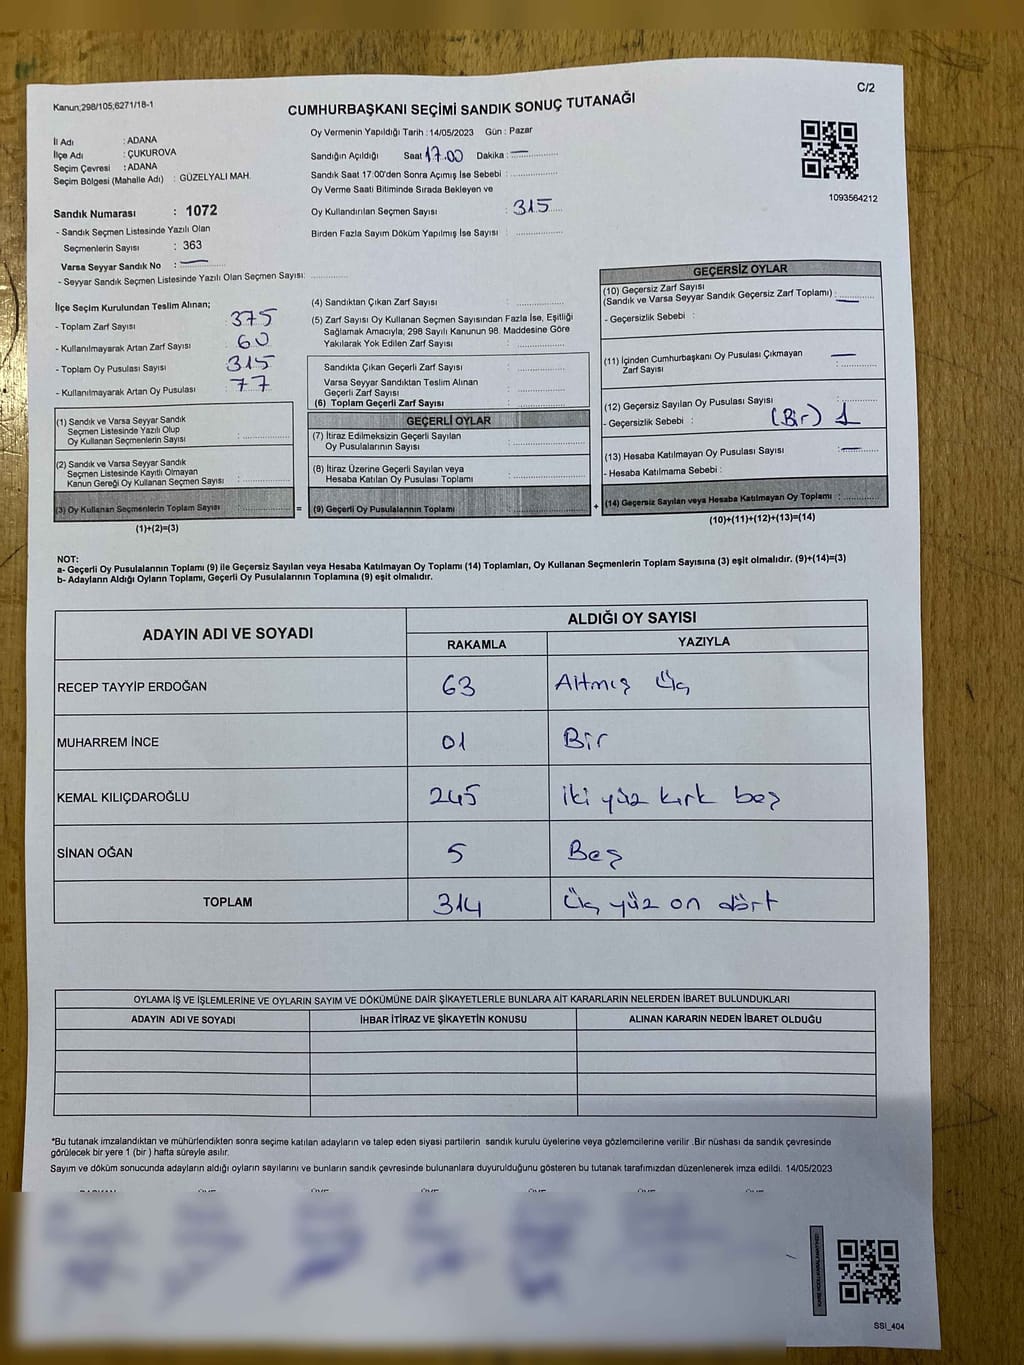 Kanun;298/105;6271/18-1
C/2
CUMHURBAŞKANI SEÇİMİ SANDIK SONUÇ TUTANAĞI
İl Adı : ADANA
İlçe Adı : ÇUKUROVA
Seçim Çevresi : ADANA
Seçim Bölgesi (Mahalle Adı) : GÜZELYALI MAH.
Sandık Numarası : 1072
- Sandık Seçmen Listesinde Yazılı Olan
Seçmenlerin Sayısı : 363
Varsa Seyyar Sandık No :
- Seyyar Sandık Seçmen Listesinde Yazılı Olan Seçmen Sayısı:
Oy Vermenin Yapıldığı Tarih : 14/05/2023 Gün : Pazar
Sandığın Açıldığı Saat 17.00 Dakika :
Sandık Saat 17:00'den Sonra Açımış İse Sebebi :
Oy Verme Saati Bitiminde Sırada Bekleyen ve
Oy Kullandırılan Seçmen Sayısı : 315
Birden Fazla Sayım Döküm Yapılmış İse Sayısı :
1093564212
İlçe Seçim Kurulundan Teslim Alınan;
- Toplam Zarf Sayısı 375
- Kullanılmayarak Artan Zarf Sayısı 60
- Toplam Oy Pusulası Sayısı 315
- Kullanılmayarak Artan Oy Pusulası 77
(1) Sandık ve Varsa Seyyar Sandık
Seçmen Listesinde Yazılı Olup
Oy Kullanan Seçmenlerin Sayısı :
(2) Sandık ve Varsa Seyyar Sandık
Seçmen Listesinde Kayıtlı Olmayan
Kanun Gereği Oy Kullanan Seçmen Sayısı :
(3) Oy Kullanan Seçmenlerin Toplam Sayısı :
(1)+(2)=(3)
=
(4) Sandıktan Çıkan Zarf Sayısı :
(5) Zarf Sayısı Oy Kullanan Seçmen Sayısından Fazla İse, Eşitliği
Sağlamak Amacıyla; 298 Sayılı Kanunun 98. Maddesine Göre
Yakılarak Yok Edilen Zarf Sayısı :
Sandıkta Çıkan Geçerli Zarf Sayısı :
Varsa Seyyar Sandıktan Teslim Alınan
Geçerli Zarf Sayısı :
(6) Toplam Geçerli Zarf Sayısı :
GEÇERLİ OYLAR
(7) İtiraz Edilmeksizin Geçerli Sayılan
Oy Pusulalarının Sayısı :
(8) İtiraz Üzerine Geçerli Sayılan veya
Hesaba Katılan Oy Pusulası Toplamı :
(9) Geçerli Oy Pusulalarının Toplamı :
+
GEÇERSİZ OYLAR
(10) Geçersiz Zarf Sayısı
(Sandık ve Varsa Seyyar Sandık Geçersiz Zarf Toplamı) :
- Geçersizlik Sebebi :
(11) İçinden Cumhurbaşkanı Oy Pusulası Çıkmayan
Zarf Sayısı :
(12) Geçersiz Sayılan Oy Pusulası Sayısı
- Geçersizlik Sebebi : (Bir) 1
(13) Hesaba Katılmayan Oy Pusulası Sayısı :
- Hesaba Katılmama Sebebi :
(14) Geçersiz Sayılan veya Hesaba Katılmayan Oy Toplamı :
(10)+(11)+(12)+(13)=(14)
NOT:
a- Geçerli Oy Pusulalarının Toplamı (9) ile Geçersiz Sayılan veya Hesaba Katılmayan Oy Toplamı (14) Toplamları, Oy Kullanan Seçmenlerin Toplam Sayısına (3) eşit olmalıdır. (9)+(14)=(3)
b- Adayların Aldığı Oyların Toplamı, Geçerli Oy Pusulalarının Toplamına (9) eşit olmalıdır.
ADAYIN ADI VE SOYADI ALDIĞI OY SAYISI
RAKAMLA YAZIYLA
RECEP TAYYİP ERDOĞAN 63 Altmış Üç
MUHARREM İNCE 01 Bir
KEMAL KILIÇDAROĞLU 245 iki yüz kırk beş
SİNAN OĞAN 5 Beş
TOPLAM 314 Üç yüz on dört
OYLAMA İŞ VE İŞLEMLERİNE VE OYLARIN SAYIM VE DÖKÜMÜNE DAİR ŞİKAYETLERLE BUNLARA AİT KARARLARIN NELERDEN İBARET BULUNDUKLARI
ADAYIN ADI VE SOYADI İHBAR İTİRAZ VE ŞİKAYETİN KONUSU ALINAN KARARIN NEDEN İBARET OLDUĞU
*Bu tutanak imzalandıktan ve mühürlendikten sonra seçime katılan adayların ve talep eden siyasi partilerin sandık kurulu üyelerine veya gözlemcilerine verilir .Bir nüshası da sandık çevresinde
görülecek bir yere 1 (bir ) hafta süreyle asılır.
Sayım ve döküm sonucunda adayların aldığı oyların sayılarını ve bunların sandık çevresinde bulunanlara duyurulduğunu gösteren bu tutanak tarafımızdan düzenlenerek imza edildi. 14/05/2023
SSI_404